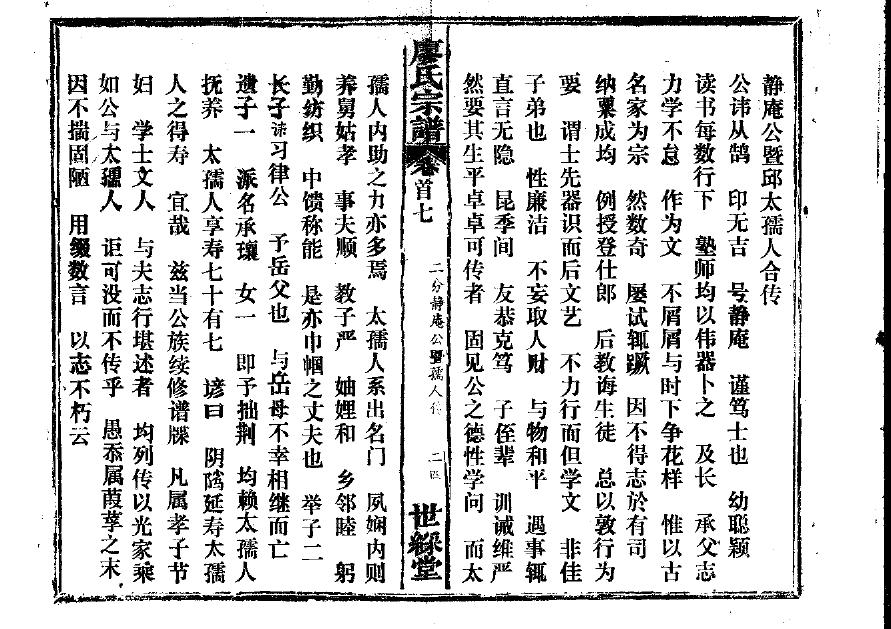 静庵公暨邱太孺人合传
公讳从鹄　印无吉　号静庵　谨笃士也　幼聪颖
读书每数行下　塾师均以伟器卜之　及长　承父志
力学不怠　作为文　不屑屑与时下争花样　惟以古
名家为宗　然数奇　屡试辄蹶　因不得志於有司
纳粟成均　例授登仕郎　后教诲生徒　总以敦行为
要　谓士先器识而后文艺　不力行而但学文　非佳
子弟也　性廉洁　不妄取人财　与物和平　遇事辄
直言无隐　昆季间　友恭克笃　子侄辈　训诫维严
然要其生平卓卓可传者　固见公之德性学问　而太
廖氏宗谱　卷首七　二分静庵公暨孺人传　二四　世綵堂
孺人内助之力亦多焉　太孺人系出名门　夙娴内则
养舅姑孝　事夫顺　教子严　妯娌和　乡邻睦　躬
勤纺织　中馈称能　是亦巾帼之丈夫也　举子二
长子泳习律公　予岳父也　与岳母不幸相继而亡
遗子一　派名承瓖　女一　即予拙荆　均赖太孺人
抚养　太孺人享寿七十有七　谚曰　阴骘延寿太孺
人之得寿　宜哉　兹当公族续修谱牒　凡属孝子节
妇　学士文人　与夫志行堪述者　均列传以光家乘
如公与太孺人　讵可没而不传乎　愚忝属葭莩之末
因不揣固陋　用缀数言　以志不朽云